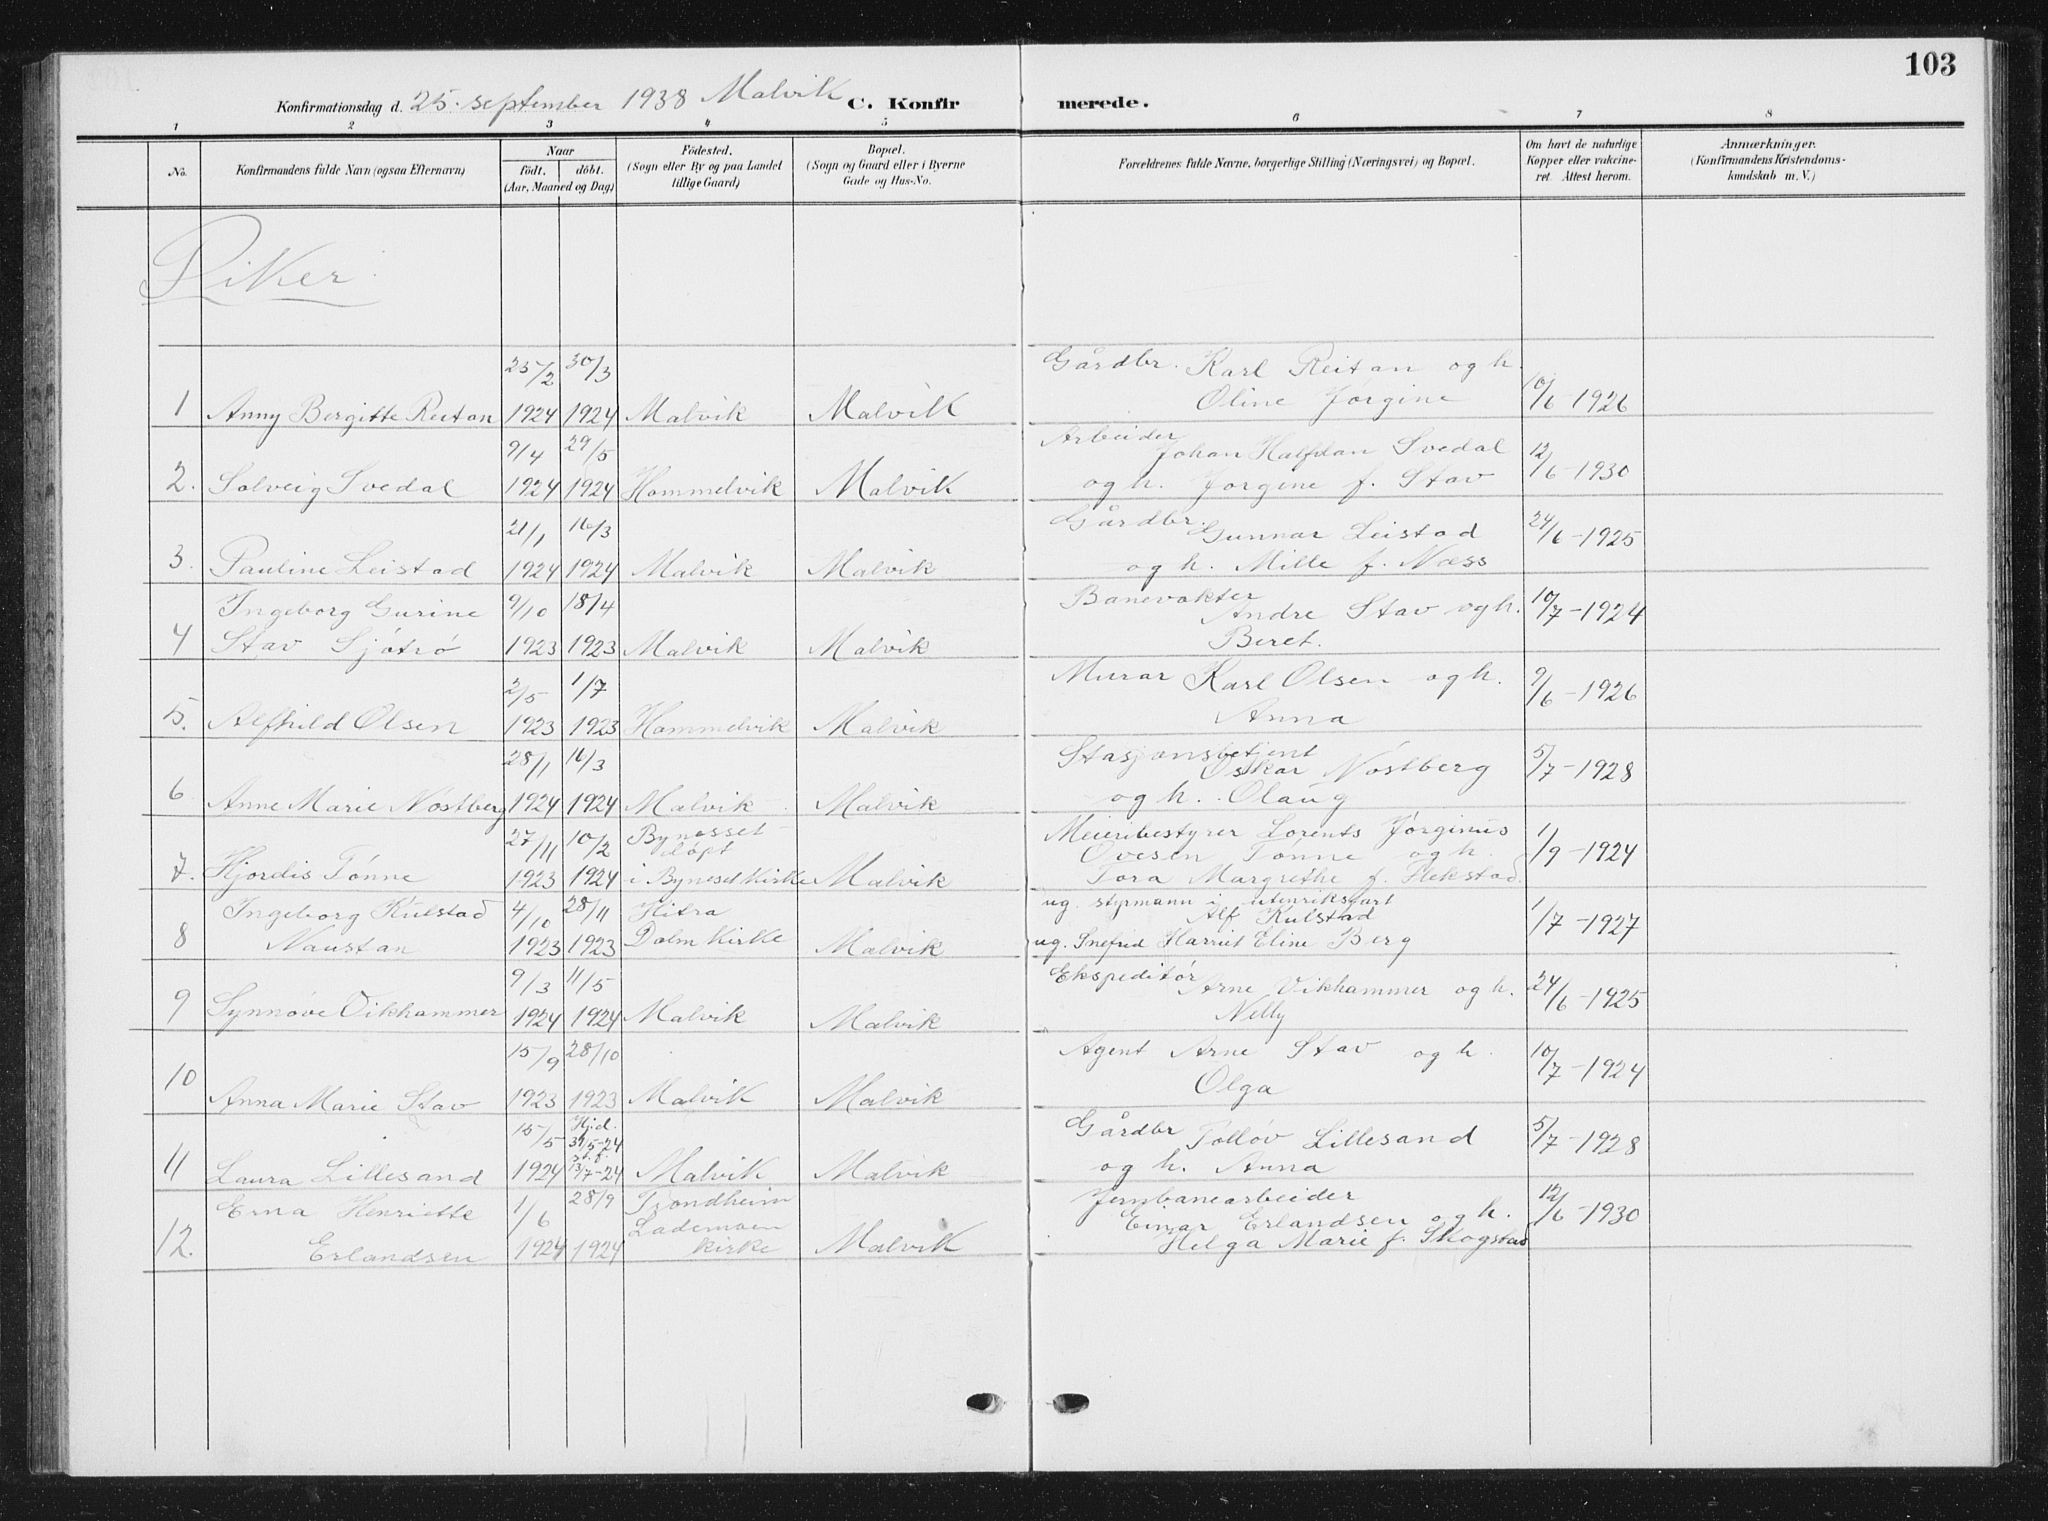 103
Konfirmationsdag d. 25. september 1938 Malvik C. Konfirmerede.
1 2 3 4 5 6 7 8
No. Konfirmandens fulde Navn (ogsaa Efternavn) Naar født, døbt. (Aar, Maaned og Dag) Fødested. (Sogn eller By og paa Landet tillige Gaard) Bopæl. (Sogn og Gaard eller i Byerne Gade og Hus-No. Forældrenes fulde Navne, borgerlige Stilling (Næringsvei) og Bopæl. Om havt de naturlige Kopper eller vakcineret. Attest herom. Anmærkninger. (Konfirmandens Kristendomskundskab m. V.)
Piker
25/2 30/3 Gårdbr. Karl Reitan og h.
1 Anny Bergitte Reitan 1924 1924 Malvik Malvik Oline Jørgine 10/6-1926
9/4 29/5 Arbeider Johan Halfdan Svedal
2. Solveig Svedal 1924 1924 Hommelvik Malvik og h. Jørgine f. Stav 12/6-1930
21/1 16/3 Gårdbr. Gunnar Leistad
3. Pauline Leistad 1924 1924 Malvik Malvik og h. Mille f. Næss 24/6-1925
Ingeborg Gurine 9/10 18/4 Banevakter Andre Stav og h.
4 Stav Sjøtrø 1923 1923 Malvik Malvik Beret. 10/7-1924
2/5 1/7 Murar Karl Olsen og h.
5. Alfhild Olsen 1923 1923 Hommelvik Malvik Anna 9/6-1926
28/1 16/3 Stasjonsbetjent Oskar Nøstberg
6 Anne Marie Nøstberg 1924 1924 Malvik Malvik og h. Olaug 5/7-1928
27/11 10/2 Bynesset døpt Meieribestyrer Lorents Jørginus
Ovesen Tønne og h.
7. Hjørdis Tønne 1923 1924 i Byneset Kirke Malvik Tora Margrethe f. Hekstad. 1/9-1924
Ingeborg Kulstad 4/10 28/11 Hitra ug. styrmann i utenriksfart
Alf Kulstad
8 Naustan 1923 1923 Dolm Kirke Malvik ug. Snefrid Harriet Eline Berg 1/7-1927
9/3 11/5 Ekspeditør Arne Vikhammer og h.
9 Synnøve Vikhammer 1924 1924 Malvik Malvik Nelly 24/6-1925
15/9 28/10 Agent Arne Stav og h.
10 Anna Marie Stav 1923 1923 Malvik Malvik Olga 10/7-1924
15/5 Hj.d. Gårdbr Tolløv Lillesand
11 Laura Lillesand 1924 13/7-24 Malvik Malvik og h. Anna 5/7-1928
Erna Henriette 1/6 28/9 Trondheim Jernbanearbeider
Lademoen Einar Erlandsen og h.
12. Erlandsen 1924 1924 Kirke Malvik Helga Marie f. Skogstad 12/6-1930